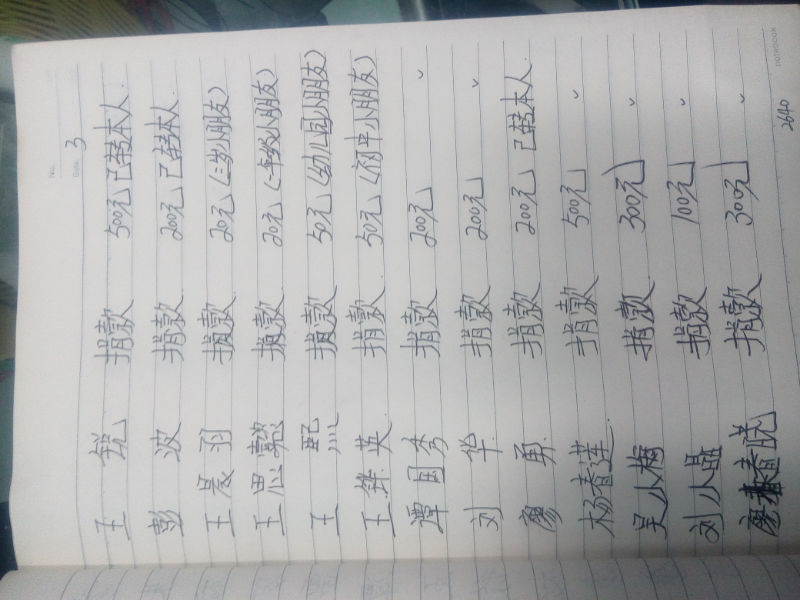 No.
Date 3
王锐 捐款 500元 已转本人.
彭波 捐款 200元 已转本人.
王晨羽 捐款 20元(三岁小朋友)
王思懿 捐款 20元(一年级小朋友)
王熙 捐款 50元(幼儿园小朋友)
王锦英 捐款 50元(初中小朋友)
谭国秀 捐款 200元 ✓
刘华 捐款 200元 ✓
廖勇 捐款 200元 已转本人.
杨青莲 捐款 500元 ✓
吴小梅 捐款 300元 ✓
刘小晶 捐款 100元 ✓
廖春 捐款 300元 ✓
2640
NOTEBOOK